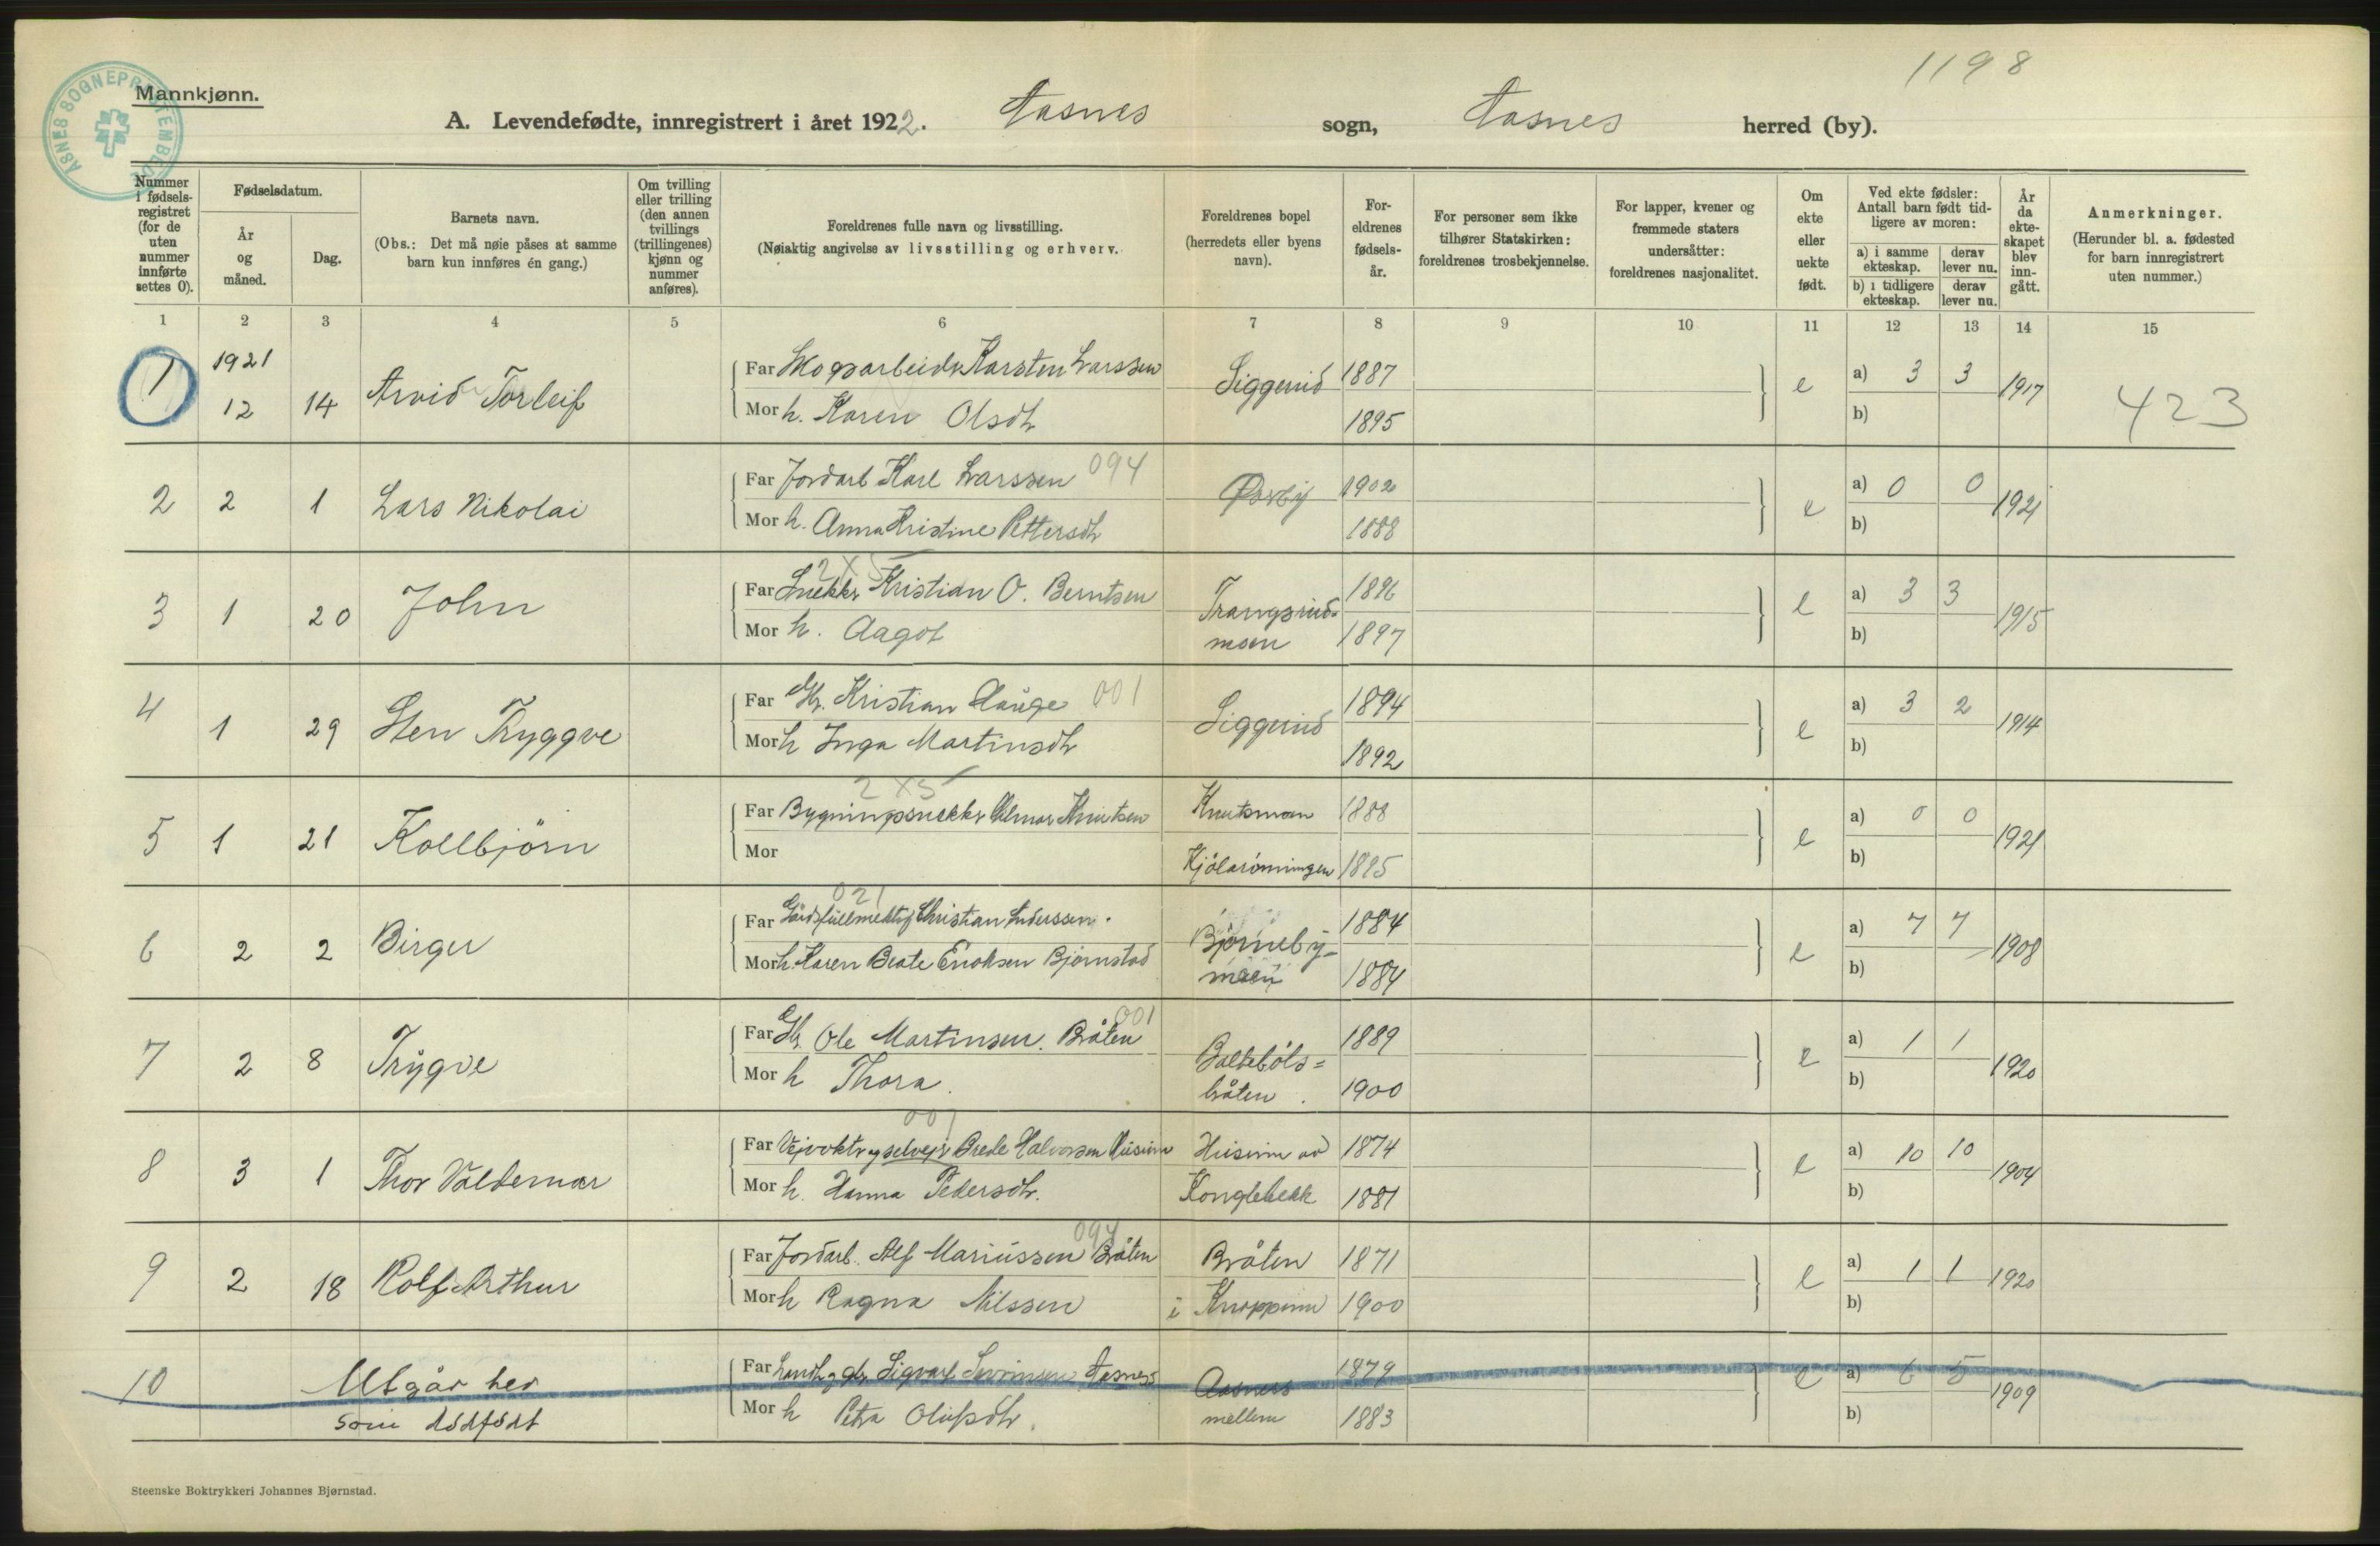 1198
ÅSNES SOGNEPRESTEMBEDE
Mannkjønn.
A. Levendefødte, innregistrert i året 1922. Aasnes sogn, Aasnes herred (by).
Nummer i fødsels-registret (for de uten nummer innførte settes 0).
Fødselsdatum.
År og måned.
Dag.
Barnets navn.
(Obs.: Det må nøie påses at samme barn kun innføres én gang.)
Om tvilling eller trilling (den annen tvillings (trillingenes) kjønn og nummer anføres).
Foreldrenes fulle navn og livsstilling.
(Nøiaktig angivelse av livsstilling og erhverv.)
Foreldrenes bopel (herredets eller byens navn).
For-eldrenes fødsels-år.
For personer som ikke tilhører Statskirken: foreldrenes trosbekjennelse.
For lapper, kvener og fremmede staters undersåtter: foreldrenes nasjonalitet.
Om ekte eller uekte født.
Ved ekte fødsler: Antall barn født tid-ligere av moren:
a) i samme ekteskap. derav lever nu.
b) i tidligere ekteskap. derav lever nu.
År da ekte-skapet blev inn-gått.
Anmerkninger.
(Herunder bl. a. fødested for barn innregistrert uten nummer.)
1 2 3 4 5 6 7 8 9 10 11 12 13 14 15
1 1921 12 14 Arvid Torleif
Far Skogsarbeider Karsten Larssen Siggerud 1887 e a) 3 3 1917 423
Mor h. Karen Olsdtr 1895 b)
2 2 1 Lars Nikolai
Far Jordarb Karl Larssen 094 1902 e a) 0 0 1921
Mor h. Anna Kristine Pettersdtr 1888 b)
2x5
3 1 20 John
Far Snekker Kristian O. Berntsen 1896 e a) 3 3 1915
Mor h. Aagot moen 1897 b)
4 1 29 Sten Tryggve
Far Gbr. Kristian Hauge 001 Siggerud 1894 e a) 3 2 1914
Mor h Inga Martinsdtr 1892 b)
2x5
5 1 21 Kollbjörn
Far Bygningssnekker Hilmar Knutsen Knutsmoen 1888 e a) 0 0 1921
Mor Kjölarömningen 1895 b)
021
6 2 2 Birger
Far Gårdsfullmektig Christian Anderssen. Björneby- 1884 e a) 7 7 1908
Mor h. Karen Beate Enoksen Björnstad moen 1884 b)
7 2 8 Trygve
Far Gbr. Ole Martinsen Bråten 001 Balteböls= 1889 e a) 1 1 1920
Mor h Thora. bråten. 1900 b)
001
8 3 1 Thor Valdemar
Far Veivokter og selveier Brede Halvorsen Husum Husum av 1874 e a) 10 10 1904
Mor h. Hanna Pedersdtr. Konglebekk 1881 b)
094
9 2 18 Rolf Arthur
Far Jordarb. Alf Mariussen Bråten Bråten 1871 e a) 1 1 1920
Mor h Ragna Nilssen i 1900 b)
10 Utgår her
Far Landh. og gbr. Sigvart Severinsen Aasnes Aasnes 1879 e a) 6 5 1909
som dödfödt
Mor h Petra Olufsdtr. mellem 1883 b)
Steenske Boktrykkeri Johannes Bjørnstad.